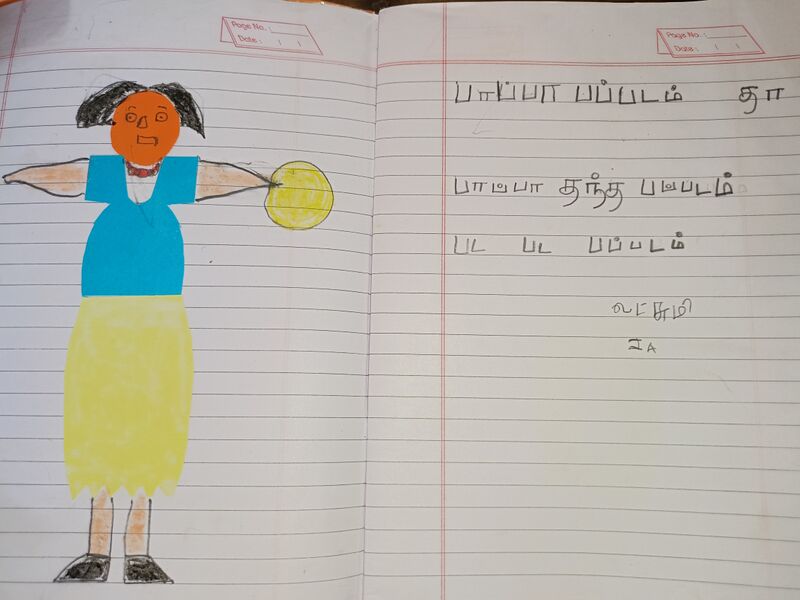 Page No.:
Date:
Page No.:
Date:
பாப்பா பப்படம் தா
பாப்பா தந்த பப்படம்
பட பட பப்படம்
லட்சுமி
I A